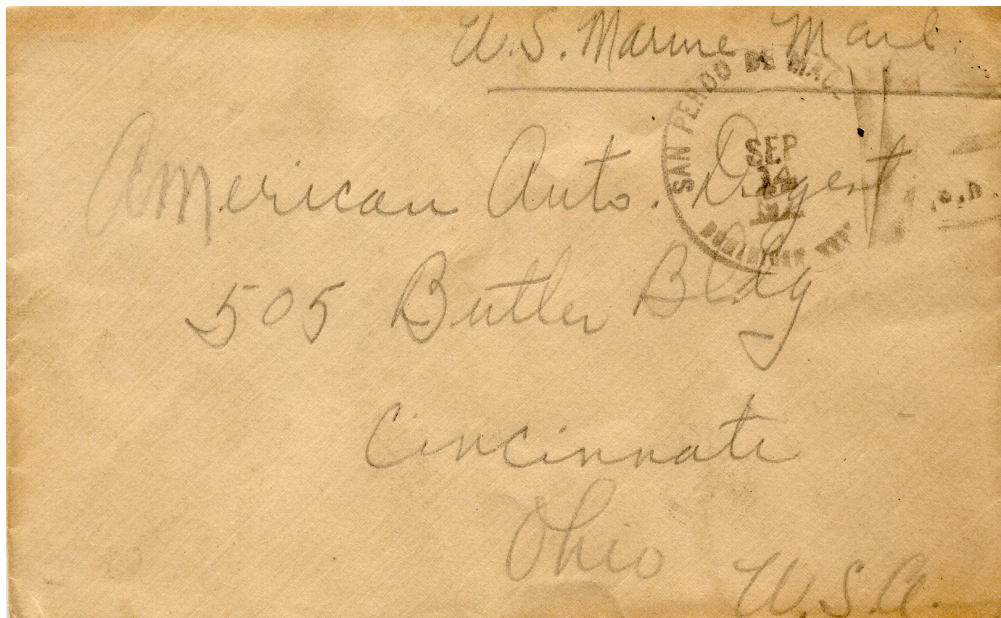 U.S. Marine Mail.
SAN PEDRO DE MAC.
SEP
14
DOMINICAN REP.
American Auto. Digest
505 Butler Bldg
Cincinnati
Ohio
U.S.A.